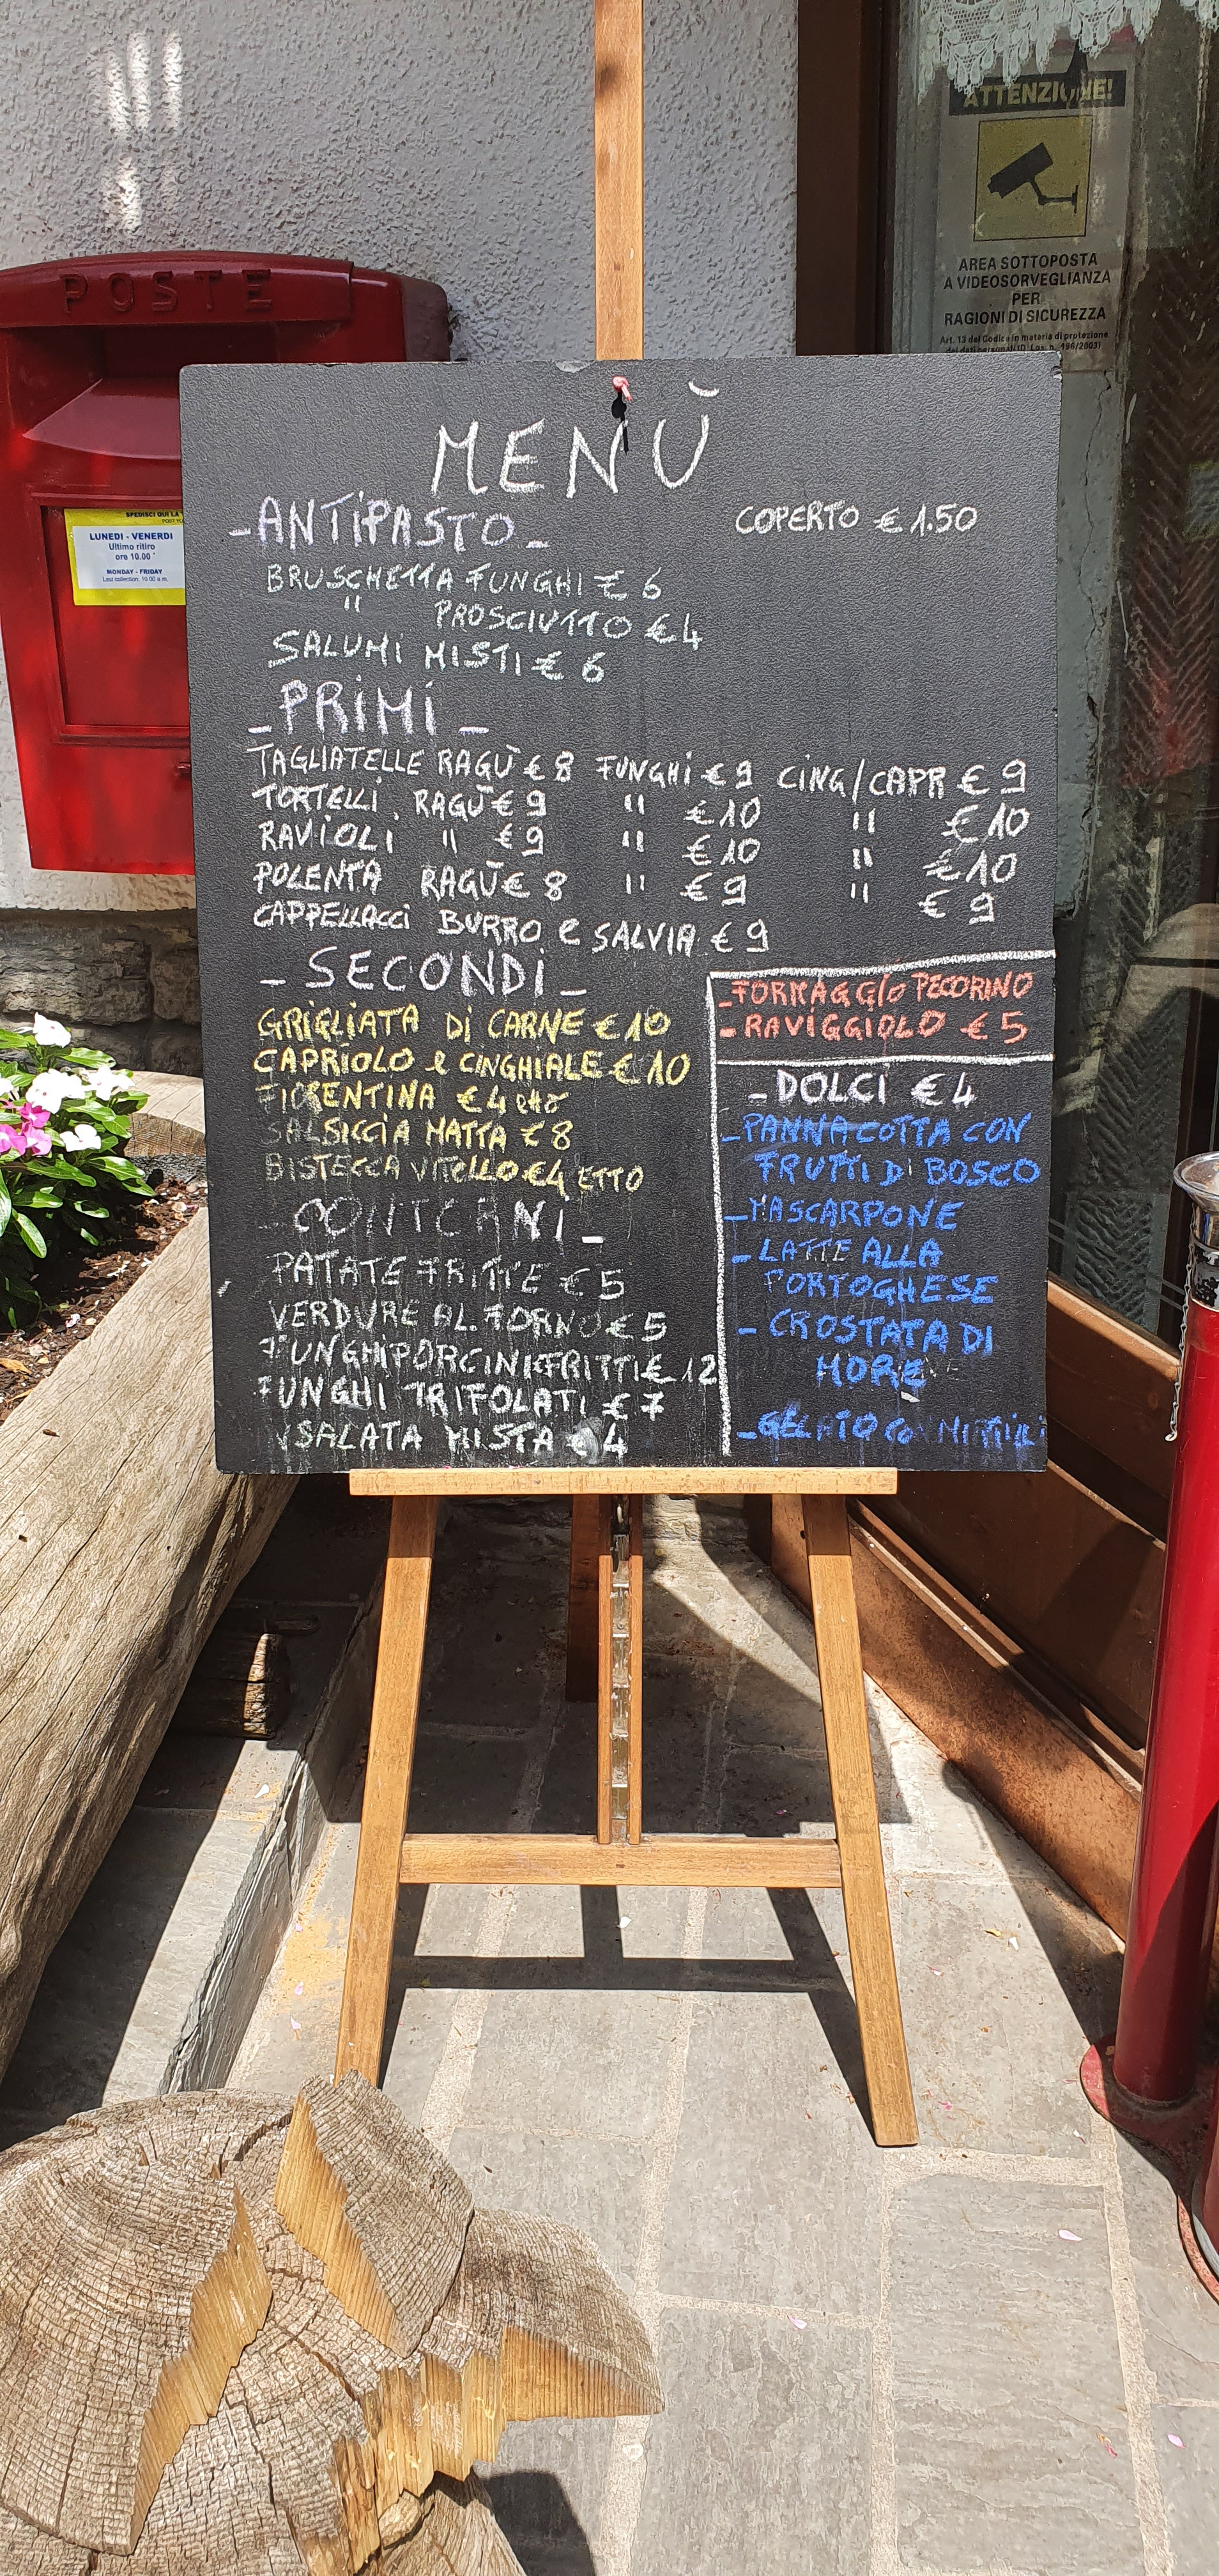 ATTENZIONE!
AREA SOTTOPOSTA
A VIDEOSORVEGLIANZA
PER
RAGIONI DI SICUREZZA
Art. 13 del Codice in materia di protezione
dei dati personali (D. Lgs. n. 196/2003)
POSTE
SPEDISCI QUI LA
POST
LUNEDI - VENERDI
Ultimo ritiro
ore 10.00
MONDAY - FRIDAY
Last collection: 10.00 a.m.
MENÙ
-ANTIPASTO-
COPERTO € 1.50
BRUSCHETTA FUNGHI € 6
" PROSCIUTTO € 4
SALUMI MISTI € 6
-PRIMI-
TAGLIATELLE RAGÙ € 8 FUNGHI € 9 CING/CAPR € 9
TORTELLI RAGÙ € 9 " € 10 " € 10
RAVIOLI " € 9 " € 10 " € 10
POLENTA RAGÙ € 8 " € 9 " € 9
CAPPELLACCI BURRO e SALVIA € 9
-SECONDI-
GRIGLIATA DI CARNE € 10
CAPRIOLO e CINGHIALE € 10
FIORENTINA € 4 etto
SALSICCIA MATTA € 8
BISTECCA VITELLO € 4 ETTO
-CONTORNI-
PATATE FRITTE € 5
VERDURE AL FORNO € 5
FUNGHI PORCINI FRITTI € 12
FUNGHI TRIFOLATI € 7
INSALATA MISTA € 4
-FORMAGGIO PECORINO
-RAVIGGIOLO € 5
-DOLCI € 4
-PANNA COTTA CON
FRUTTI DI BOSCO
-MASCARPONE
-LATTE ALLA
PORTOGHESE
-CROSTATA DI
MORE
-GELATO CON MIRTILLI